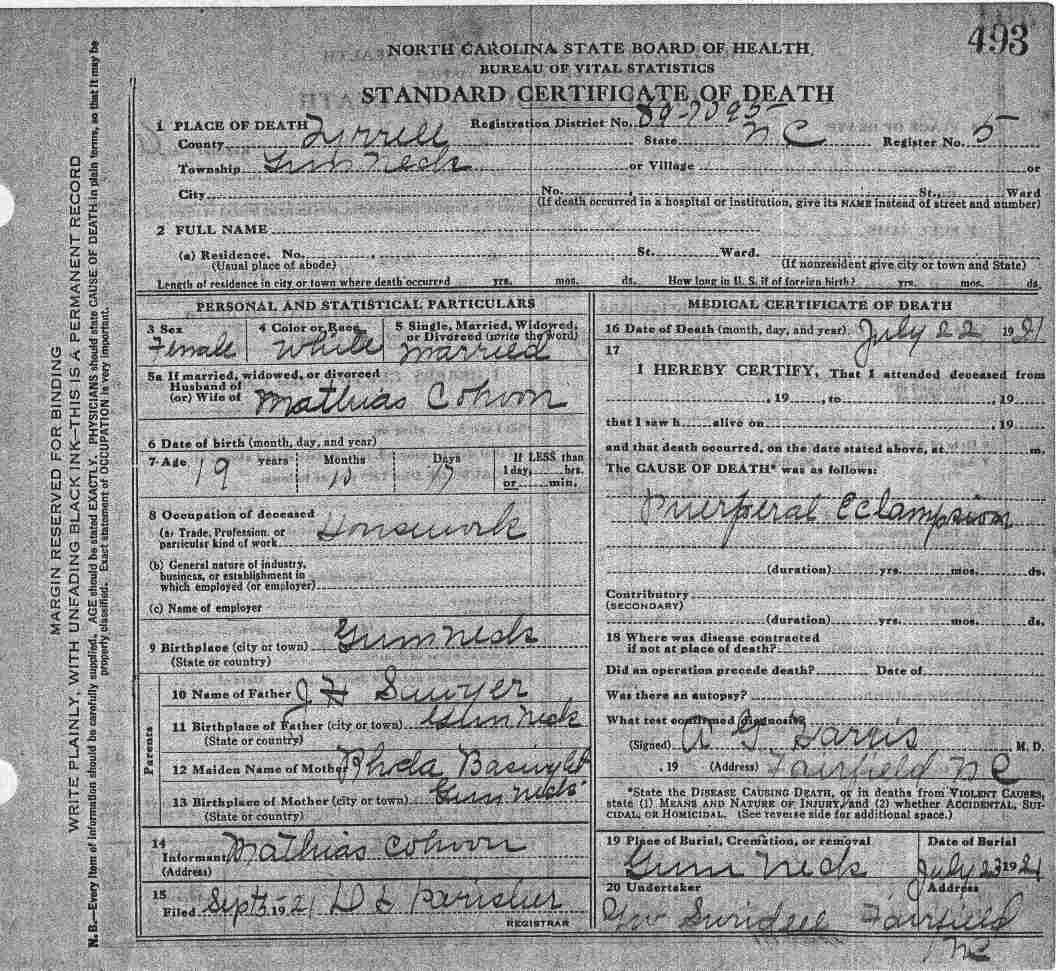 493
NORTH CAROLINA STATE BOARD OF HEALTH
BUREAU OF VITAL STATISTICS
STANDARD CERTIFICATE OF DEATH
1 PLACE OF DEATH Registration District No. 89-7095
County Tyrrell State NC Register No. 5
Township Gum Neck or Village or
City No. , St., Ward
(If death occurred in a hospital or institution, give its NAME instead of street and number)
2 FULL NAME
(a) Residence. No. , St. Ward.
(Usual place of abode) (If nonresident give city or town and State)
Length of residence in city or town where death occurred yrs. mos. ds. How long in U. S. if of foreign birth? yrs. mos. ds.
PERSONAL AND STATISTICAL PARTICULARS
3 Sex 4 Color or Race 5 Single, Married, Widowed,
or Divorced (write the word)
Female White Married
5a If married, widowed, or divorced
Husband of
(or) Wife of Mathias Cohoon
6 Date of birth (month, day, and year)
7 Age 19 years Months 10 Days 17 If LESS than
1 day, hrs.
or min.
8 Occupation of deceased
(a) Trade, Profession, or
particular kind of work Housework
(b) General nature of industry,
business, or establishment in
which employed (or employer)
(c) Name of employer
9 Birthplace (city or town) Gum Neck
(State or country)
Parents
10 Name of Father J H Sawyer
11 Birthplace of Father (city or town) Gum Neck
(State or country)
12 Maiden Name of Mother Rhoda
13 Birthplace of Mother (city or town) Gum Neck
(State or country)
14
Informant Mathias Cohoon
(Address)
15
Filed Sept 5 - 21
REGISTRAR
MEDICAL CERTIFICATE OF DEATH
16 Date of Death (month, day, and year) July 22 1921
17
I HEREBY CERTIFY, That I attended deceased from
, 19 , to , 19
that I saw h alive on , 19
and that death occurred, on the date stated above, at m.
The CAUSE OF DEATH* was as follows:
Puerperal Eclampsion
(duration) yrs. mos. ds.
Contributory
(SECONDARY)
(duration) yrs. mos. ds.
18 Where was disease contracted
if not at place of death?
Did an operation precede death? Date of
Was there an autopsy?
What test confirmed diagnosis?
(Signed) A G Harris M. D.
, 19 (Address) Fairfield NC
*State the DISEASE CAUSING DEATH, or in deaths from VIOLENT CAUSES,
state (1) MEANS AND NATURE OF INJURY, and (2) whether ACCIDENTAL, SUI-
CIDAL, OR HOMICIDAL. (See reverse side for additional space.)
19 Place of Burial, Cremation, or removal Date of Burial
Gum Neck July 23 1921
20 Undertaker Address
Fairfield
NC
MARGIN RESERVED FOR BINDING
WRITE PLAINLY, WITH UNFADING BLACK INK—THIS IS A PERMANENT RECORD
N. B.—Every item of information should be carefully supplied. AGE should be stated EXACTLY. PHYSICIANS should state CAUSE OF DEATH in plain terms, so that it may be
properly classified. Exact statement of OCCUPATION is very important.